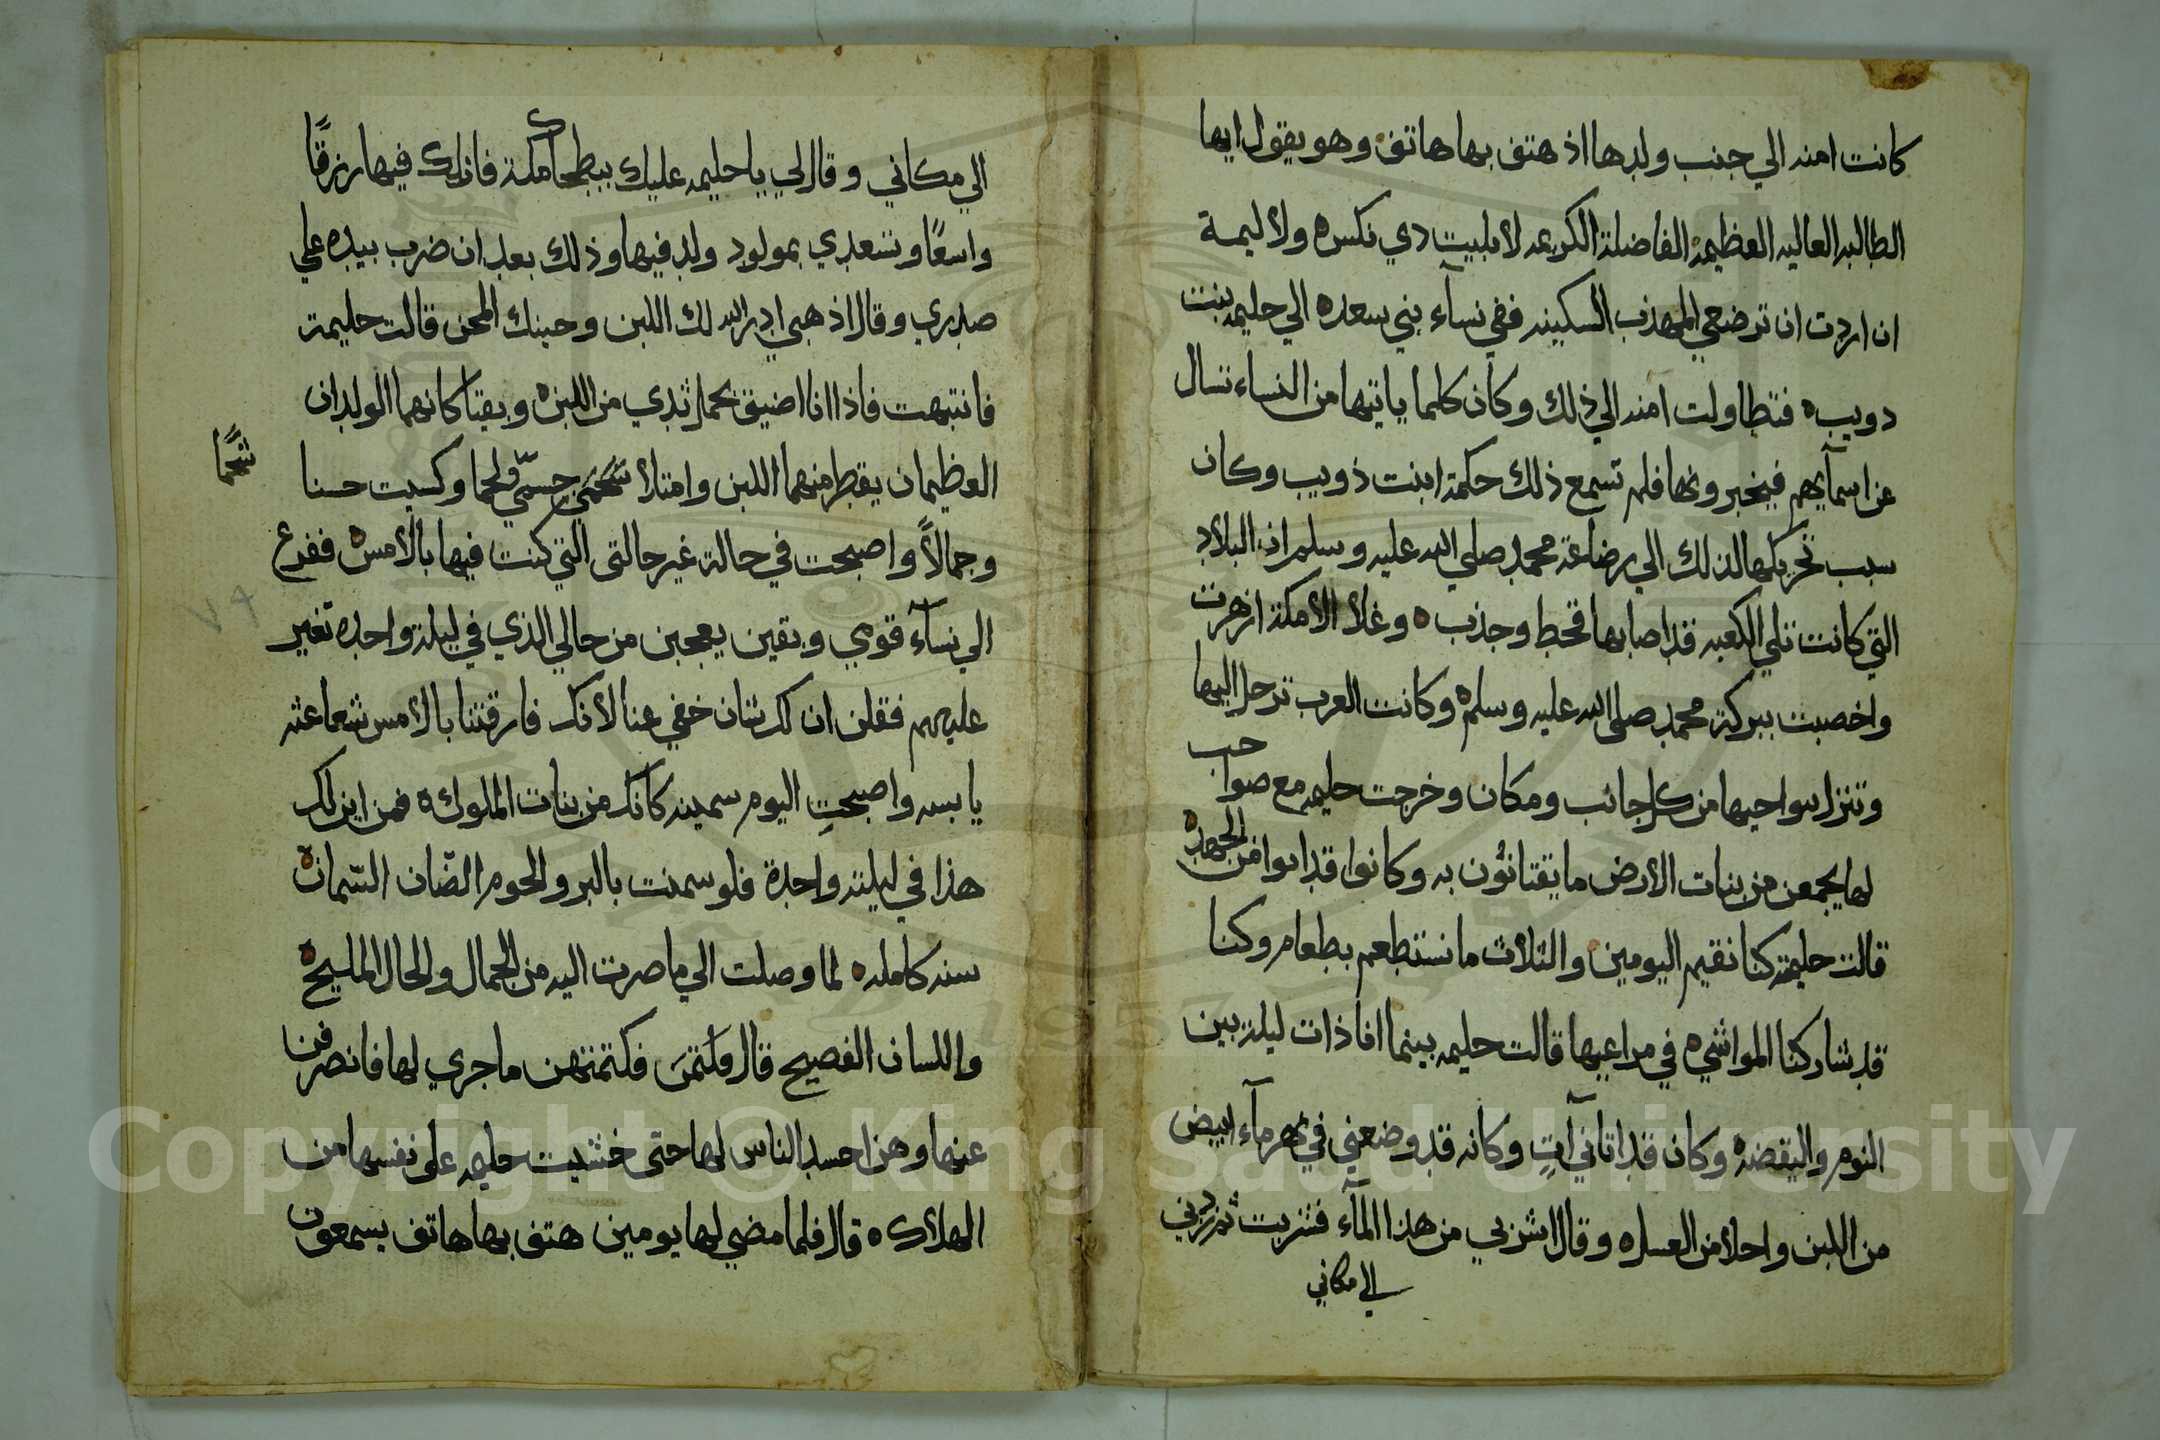 كانت امنه الي جنب ولدها اذ هتف بها هاتف وهو يقول ايها
الطالبه العاليه العظيمه الفاضلة الكريمه لا بليت دي نكسه ولا ليمة
ان اردت ان ترضعي المهذب السكينه ففي نسآء بني سعده الي حليمه بنت
دويب فتطاولت امنه الي ذلك وكان كلما ياتيها من النساء تسال
عن اسمآيهم فيخبرونها فلم تسمع ذلك حكمة ابنت ذويب وكان
سبب تحريكها لذلك الي رضاعة محمد صلي الله عليه وسلم اذ البلاد
التي كانت تلي الكعبه قد اصابها قحط وجذب وغلا الامكنة ازهرت
واخصبت ببركة محمد صلي الله عليه وسلم وكانت العرب ترحل اليها
وتنزل بنواحيها من كل جانب ومكان وخرجت حليمه مع صواحب
لها يجمعن من بنات الارض ما يقتاتون به وكانوا قد اتوا من الجهد
قالت حليمة كنا نقيم اليومين والثلاث ما نستطعم بطعام وكنا
قد شاركنا المواشي في مراعيها قالت حليمه بينما انا ذات ليلة بين
النوم واليقضه وكان قد اتاني آتٍ وكانه قد وضعني في نهر مآء ابيض
من اللبن واحلا من العسل وقال اشربي من هذا المآء فشربت ثم ردني
الي مكاني
الي مكاني وقال لي يا حليمه عليك ببطحآ مكة فان لك فيها رزقًا
واسعًا وتسعدي بمولود ولد فيها وذلك بعد ان ضرب بيده علي
صدري وقال اذهبي ادر الله لك اللبن وجبنك المحن قالت حليمة
فانتبهت فاذا انا اضيق بحمل ثدي من اللبن وبقتا كانهما الولدان
العظيمان يقطر منهما اللبن وامتلا جسمي لحما وكسيت حسنا
شحمًا
وجمالاً واصبحت في حالة غير حالتي التي كنت فيها بالامس ففزع
الي نسآء قومي وبقين يعجبن من حالي الذي في ليلة واحده تغير
عليهم فقلن ان لك شان خفي عنا لانك فارقتنا بالامس شعاعثه
يابسه واصبحتِ اليوم سمينه كانك من بنات الملوك فمن اين لك
هذا في ليلته واحدة فلو سمنت بالبر ولحوم الضّان السّمان
سنه كامله لما وصلت الي ما صرت اليه من الجمال والحال المليح
واللسان الفصيح قال فكتمتهن ما جري لها فانصرفن
عنها وهن احسد الناس لها حتى خشيت حليمه على نفسها من
الهلاك قال فلما مضي لها يومين هتف بها هاتف يسمعون
Copyright © King Saud University
1957